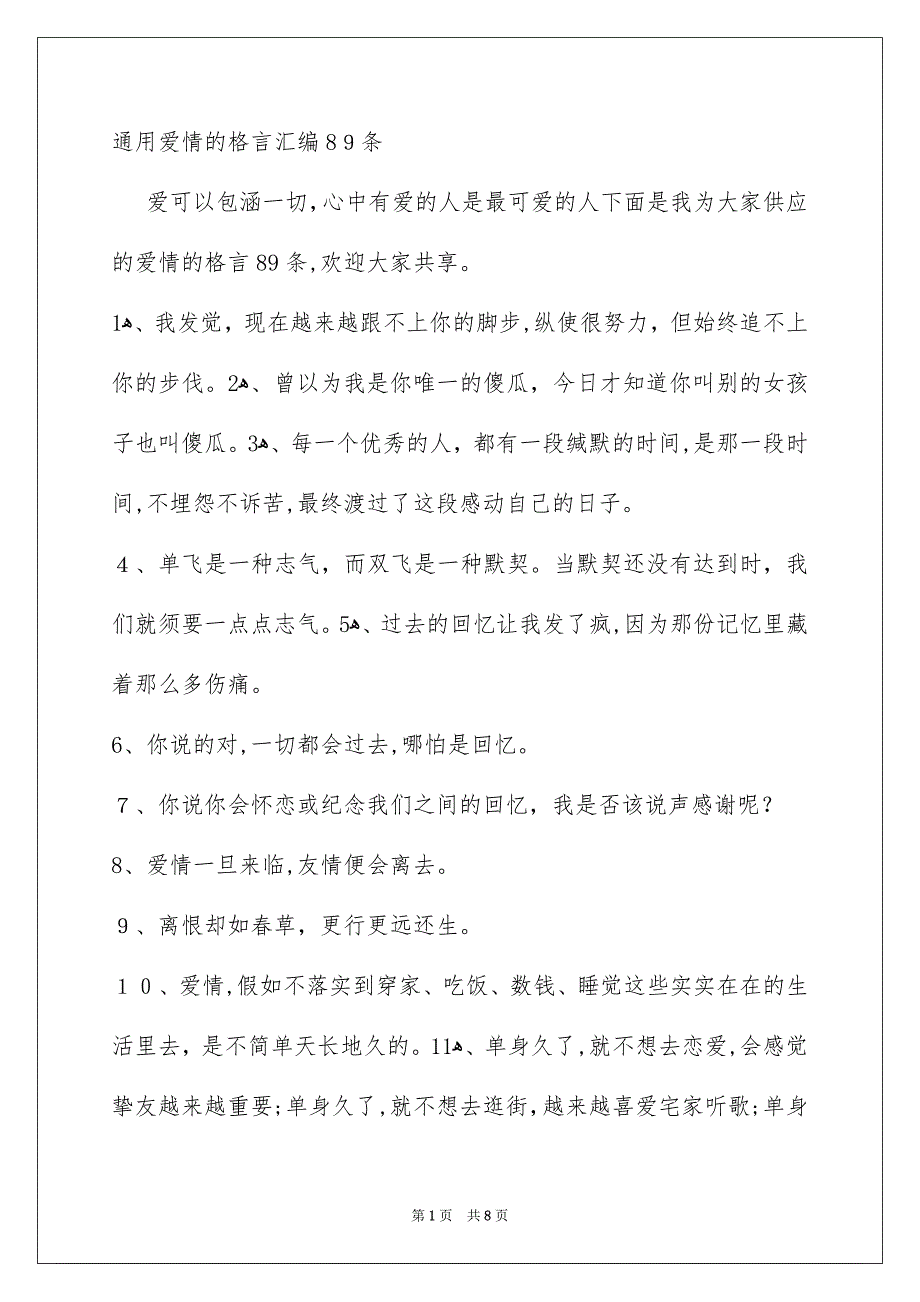 通用爱情的格言汇编８９条
爱可以包涵一切,心中有爱的人是最可爱的人下面是我为大家供应
的爱情的格言 89 条,欢迎大家共享。
1ﻫ、我发觉，现在越来越跟不上你的脚步,纵使很努力，但始终追不上
你的步伐。2ﻫ、曾以为我是你唯一的傻瓜，今日才知道你叫别的女孩
子也叫傻瓜。3ﻫ、每一个优秀的人，都有一段缄默的时间,是那一段时
间,不埋怨不诉苦,最终渡过了这段感动自己的日子。
４、单飞是一种志气，而双飞是一种默契。当默契还没有达到时，我
们就须要一点点志气。5ﻫ、过去的回忆让我发了疯,因为那份记忆里藏
着那么多伤痛。
6、你说的对,一切都会过去,哪怕是回忆。
７、你说你会怀恋或纪念我们之间的回忆，我是否该说声感谢呢？
8、爱情一旦来临,友情便会离去。
９、离恨却如春草，更行更远还生。
１０、爱情,假如不落实到穿家、吃饭、数钱、睡觉这些实实在在的生
活里去，是不简单天长地久的。11ﻫ、单身久了,就不想去恋爱,会感觉
挚友越来越重要;单身久了,就不想去逛街，越来越喜爱宅家听歌;单身
第 1 页 共 8 页